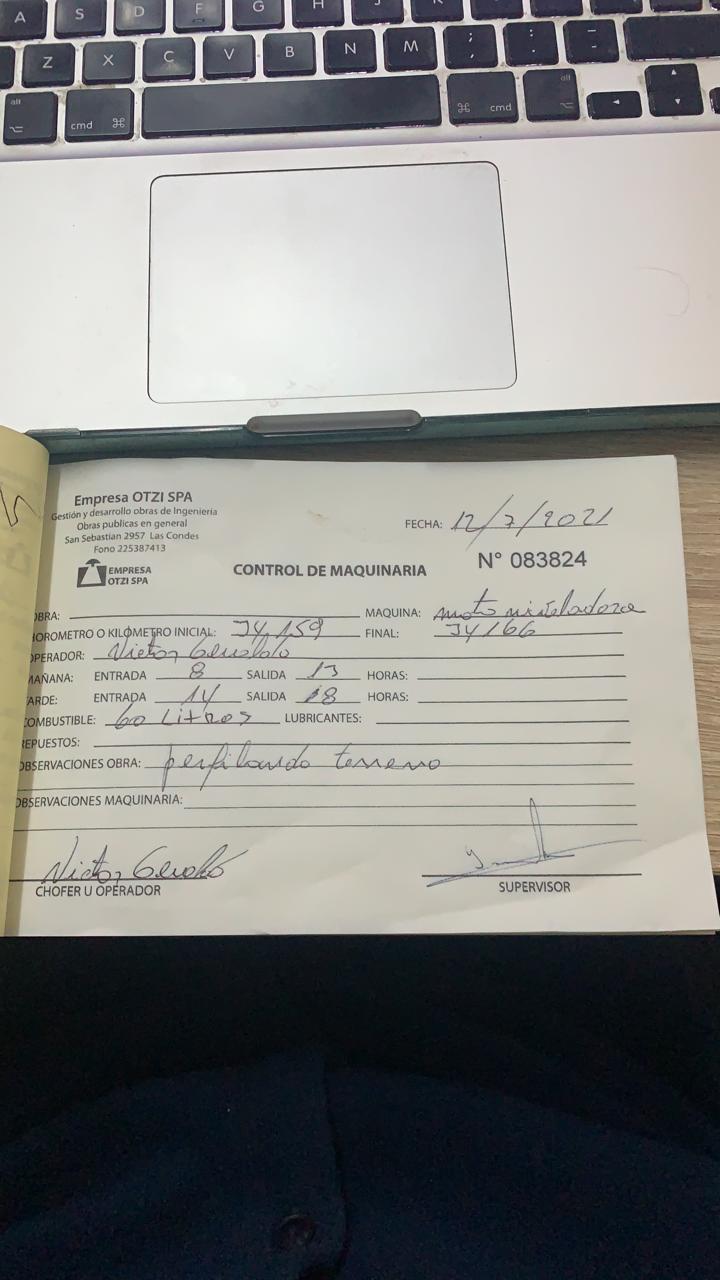 A S D F G H J
Z X C V B N M ; , : . – -
alt cmd ⌘ ⌘ cmd alt
Empresa OTZI SPA
Gestión y desarrollo obras de Ingeniería
Obras publicas en general
San Sebastian 2957 Las Condes
Fono 225387413
EMPRESA
OTZI SPA
FECHA: 12/7/2021
CONTROL DE MAQUINARIA
N° 083824
OBRA: MAQUINA: moto niveladora
HOROMETRO O KILOMETRO INICIAL: 34,159 FINAL: 34166
OPERADOR: Victor
MAÑANA: ENTRADA 8 SALIDA 13 HORAS:
TARDE: ENTRADA 14 SALIDA 18 HORAS:
COMBUSTIBLE: 60 Litros LUBRICANTES:
REPUESTOS:
OBSERVACIONES OBRA: perfilando terreno
OBSERVACIONES MAQUINARIA:
Victor
CHOFER U OPERADOR
SUPERVISOR